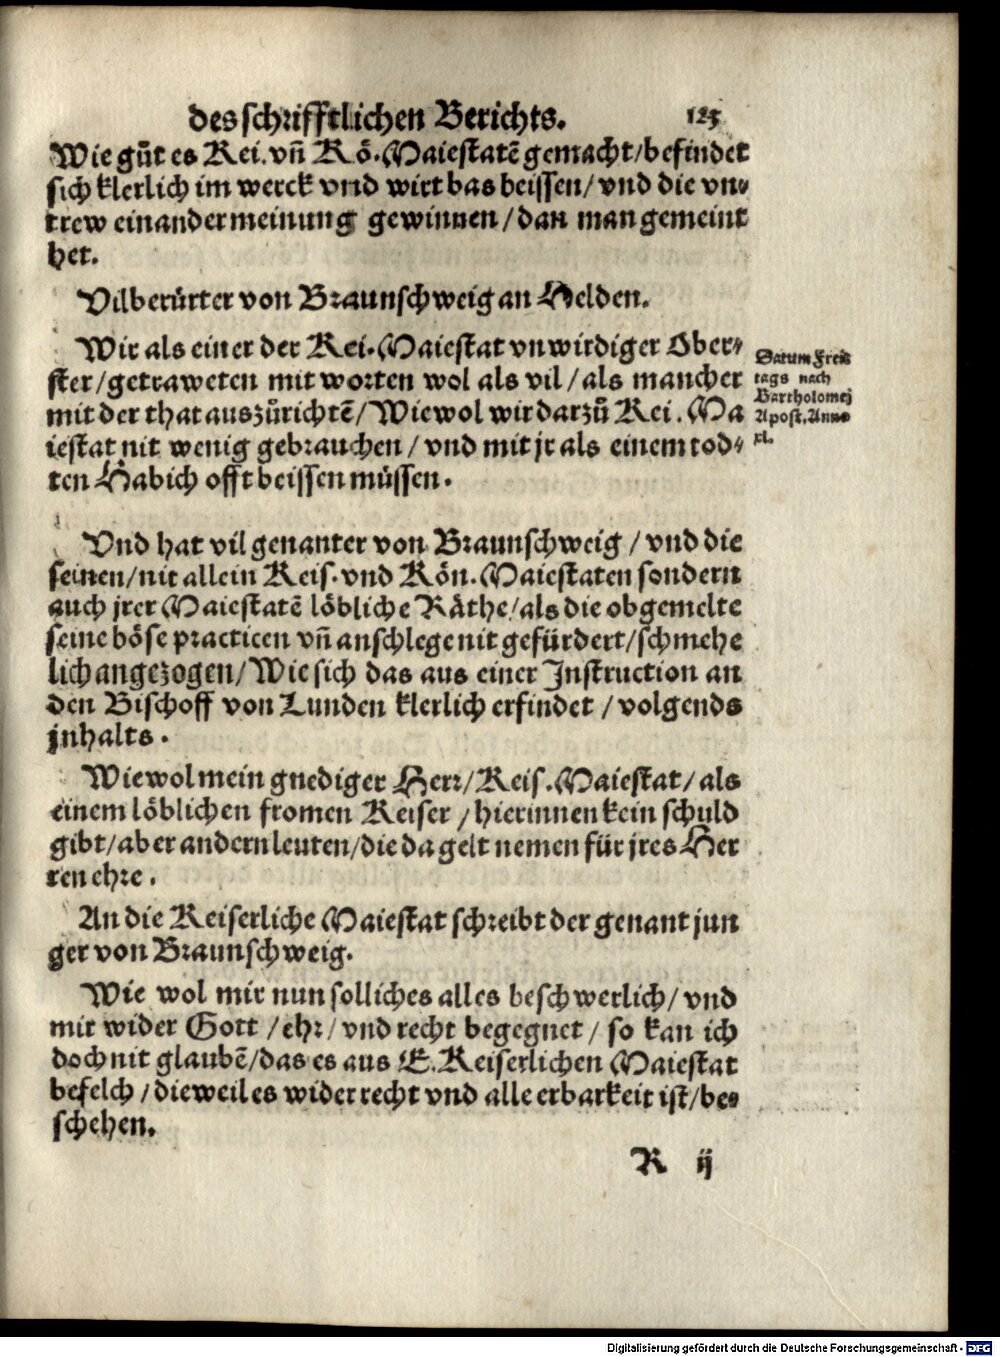 des schrifftlichen Berichts. 125
Wie gůt es Kei. vñ Kö. Maiestatē gemacht/ befindet
sich klerlich im werck vnd wirt bas beissen/ vnd die vn⸗
trew ein ander meinung gewinnen/ dan man gemeint
het.
Vilberürter von Braunschweig an Helden.
Wir als einer der Kei. Maiestat vnwirdiger Ober⸗
ster/ getraweten mit worten wol als vil/ als mancher
mit der that auszůrichtē/ Wiewol wir darzů Kei. Ma
iestat nit wenig gebrauchen/ vnd mit jr als einem tod⸗
ten Habich offt beissen müssen.
Datum Freit
tags nach
Bartholomej
Apost. Anno
xl.
Vnd hat vil genanter von Braunschweig/ vnd die
seinen/ nit allein Keis. vnd Kön. Maiestaten sondern
auch jrer Maiestatē löbliche Räthe/ als die obgemelte
seine böse practicen vñ anschlege nit gefürdert/ schmehe
lich angezogen/ Wie sich das aus einer Instruction an
den Bischoff von Lunden klerlich erfindet/ volgends
jnhalts.
Wiewol mein gnediger Herr/ Keis. Maiestat/ als
einem löblichen fromen Keiser/ hierinnen kein schuld
gibt/ aber andern leuten/ die da gelt nemen für jres Her
ren ehre.
An die Keiserliche Maiestat schreibt der genant jun
ger von Braunschweig.
Wie wol mir nun solliches alles beschwerlich/ vnd
mir wider Gott/ ehr/ vnd recht begegnet/ so kan ich
doch nit glaubē/ das es aus E. Keiserlichen Maiestat
befelch/ dieweil es wider recht vnd alle erbarkeit ist/ be⸗
schehen.
K ij
Digitalisierung gefördert durch die Deutsche Forschungsgemeinschaft - DFG